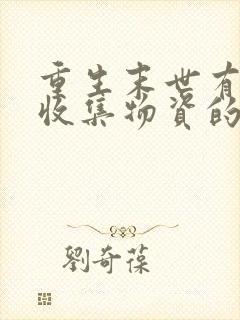 重生末世有
收集物资的
刘奇葆